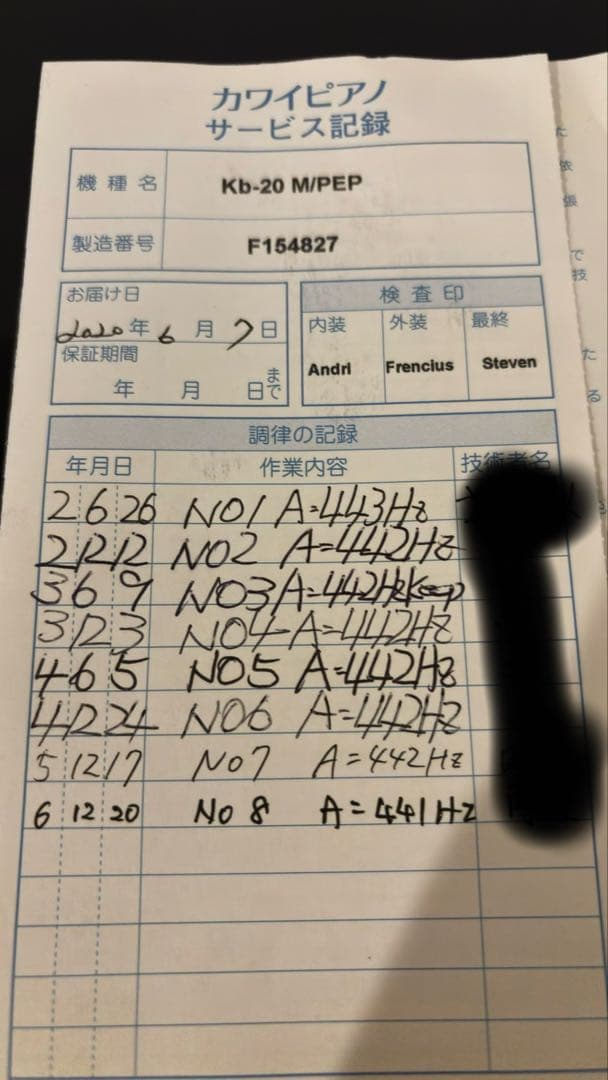 カワイピアノ
サービス記録
機種名 Kb-20 M/PEP
製造番号 F154827
お届け日
2020年6月7日
保証期間
年 月 日まで
検査印
内装 外装 最終
Andri Frencius Steven
調律の記録
年月日 作業内容 技術者名
2 6 26 NO1 A=443Hz
2 12 12 NO2 A=442Hz
3 6 9 NO3 A=442Hz Keep
3 12 3 NO4 A=442Hz
4 6 5 NO5 A=442Hz
4 12 24 NO6 A=442Hz
5 12 17 No7 A=442Hz
6 12 20 No 8 A=441Hz
た
依
張
で
技
た
る